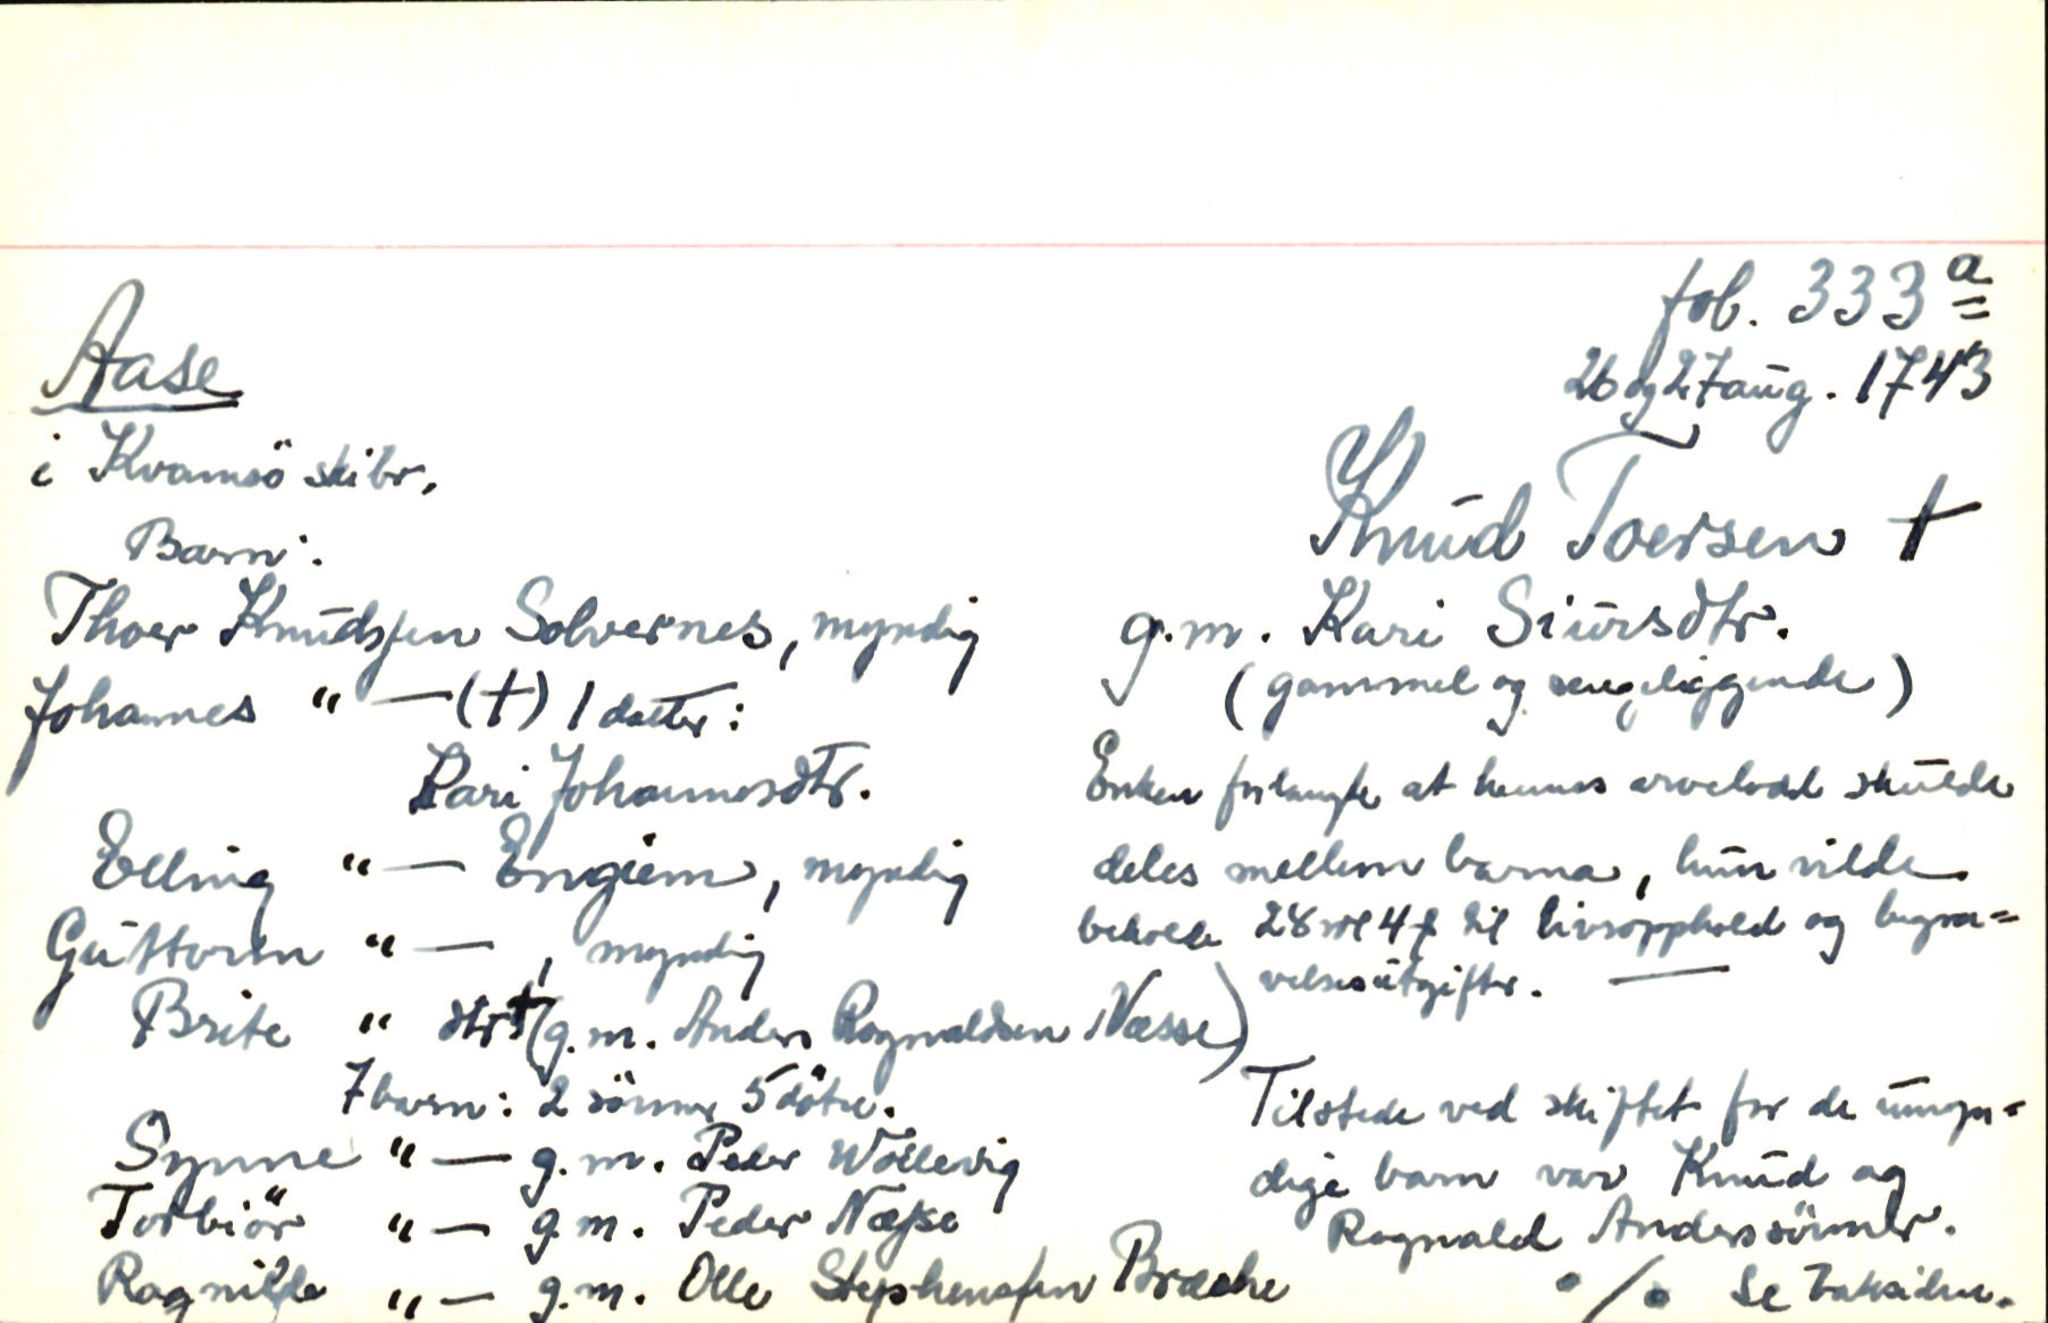 fol. 333 a
26 og 27 aug. 1743
Aase
i Kvamsö skibr.
Knud Toersen †
g.m. Kari Siursdtr.
(gammel og sengeliggende)
Barn:
Thoer Knudsen Solvernes, myndig
Johannes " — (†) 1 datter:
Kari Johannesdtr.
Elling " — Engiem, myndig
Guttorm " — , myndig
Brite " dtr † (g.m. Anders Rognaldsen Næsse)
7 barn: 2 sönner 5 dötre.
Synne " — g.m. Peder Wollevig
Torbiör " — g.m. Peder Næsse
Ragnilde " — g.m. Olle Stephensen Bræche
Enken forlangte at hennes arvelodd skulde
deles mellem barna, hun vilde
beholde 28 rdl 4 til livsopphold og begra=
velsesutgifter. —
Tilstede ved skiftet for de umyn=
dige barn var Knud og
Rognald Anderssönner.
./. Se baksiden.